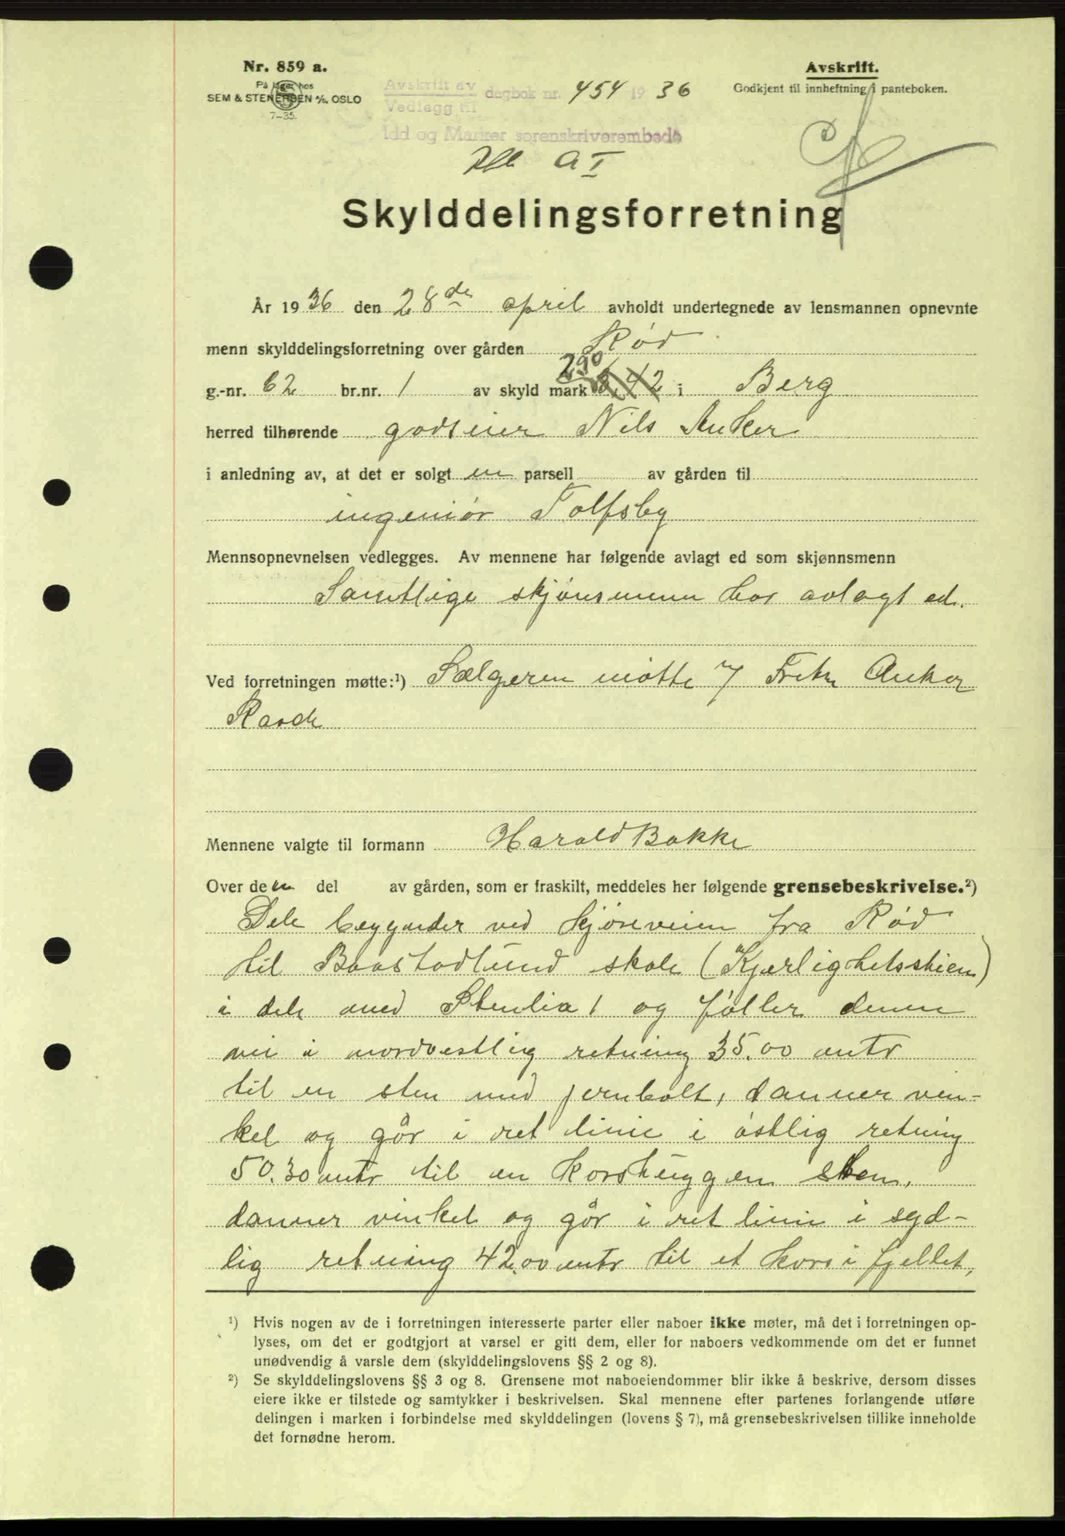 Nr. 859 a.
På lager hos
SEM & STENERSEN A/S, OSLO
7-35.
Avskrift av
Vedlegg til
dagbok nr. 454 1936
Idd og Marker sorenskriverembede
Avskrift.
Godkjent til innheftning i panteboken.
A I
Skylddelingsforretning
År 1936 den 28de april avholdt undertegnede av lensmannen opnevnte
menn skylddelingsforretning over gården Rød
g.-nr. 62 br.nr. 1 av skyld mark 290 i Berg
herred tilhørende godseier Nils Anker
i anledning av, at det er solgt en parsell av gården til
ingeniør Tolfsby
Mennsopnevnelsen vedlegges. Av mennene har følgende avlagt ed som skjønnsmenn
Samtlige skjønsmenn har avlagt ed.
Ved forretningen møtte:¹) Sælgeren møtte v/ Fritz Anker
Rasch
Mennene valgte til formann Harald Bakke
Over den del av gården, som er fraskilt, meddeles her følgende grensebeskrivelse.²)
Dele begynder ved kjøreveien fra Rød
til Baastadlund skole (Kjærlighetsstien)
i dele med Stenlia 1 og føller denne
vei i nordvestlig retning 35.00 mtr
til en sten med jernbolt, danner vin-
kel og går i ret linie i østlig retning
50.30 mtr til en korshuggen sten,
danner vinkel og går i ret linie i syd-
lig retning 42.00 mtr til et kors i fjellet,
¹) Hvis nogen av de i forretningen interesserte parter eller naboer ikke møter, må det i forretningen op-
lyses, om det er godtgjort at varsel er gitt dem, eller for naboers vedkommende om det er funnet
unødvendig å varsle dem (skylddelingslovens §§ 2 og 8).
²) Se skylddelingslovens §§ 3 og 8. Grensene mot naboeiendommer blir ikke å beskrive, dersom disses
eiere ikke er tilstede og samtykker i beskrivelsen. Skal mennene efter partenes forlangende utføre
delingen i marken i forbindelse med skylddelingen (lovens § 7), må grensebeskrivelsen tillike inneholde
det fornødne herom.